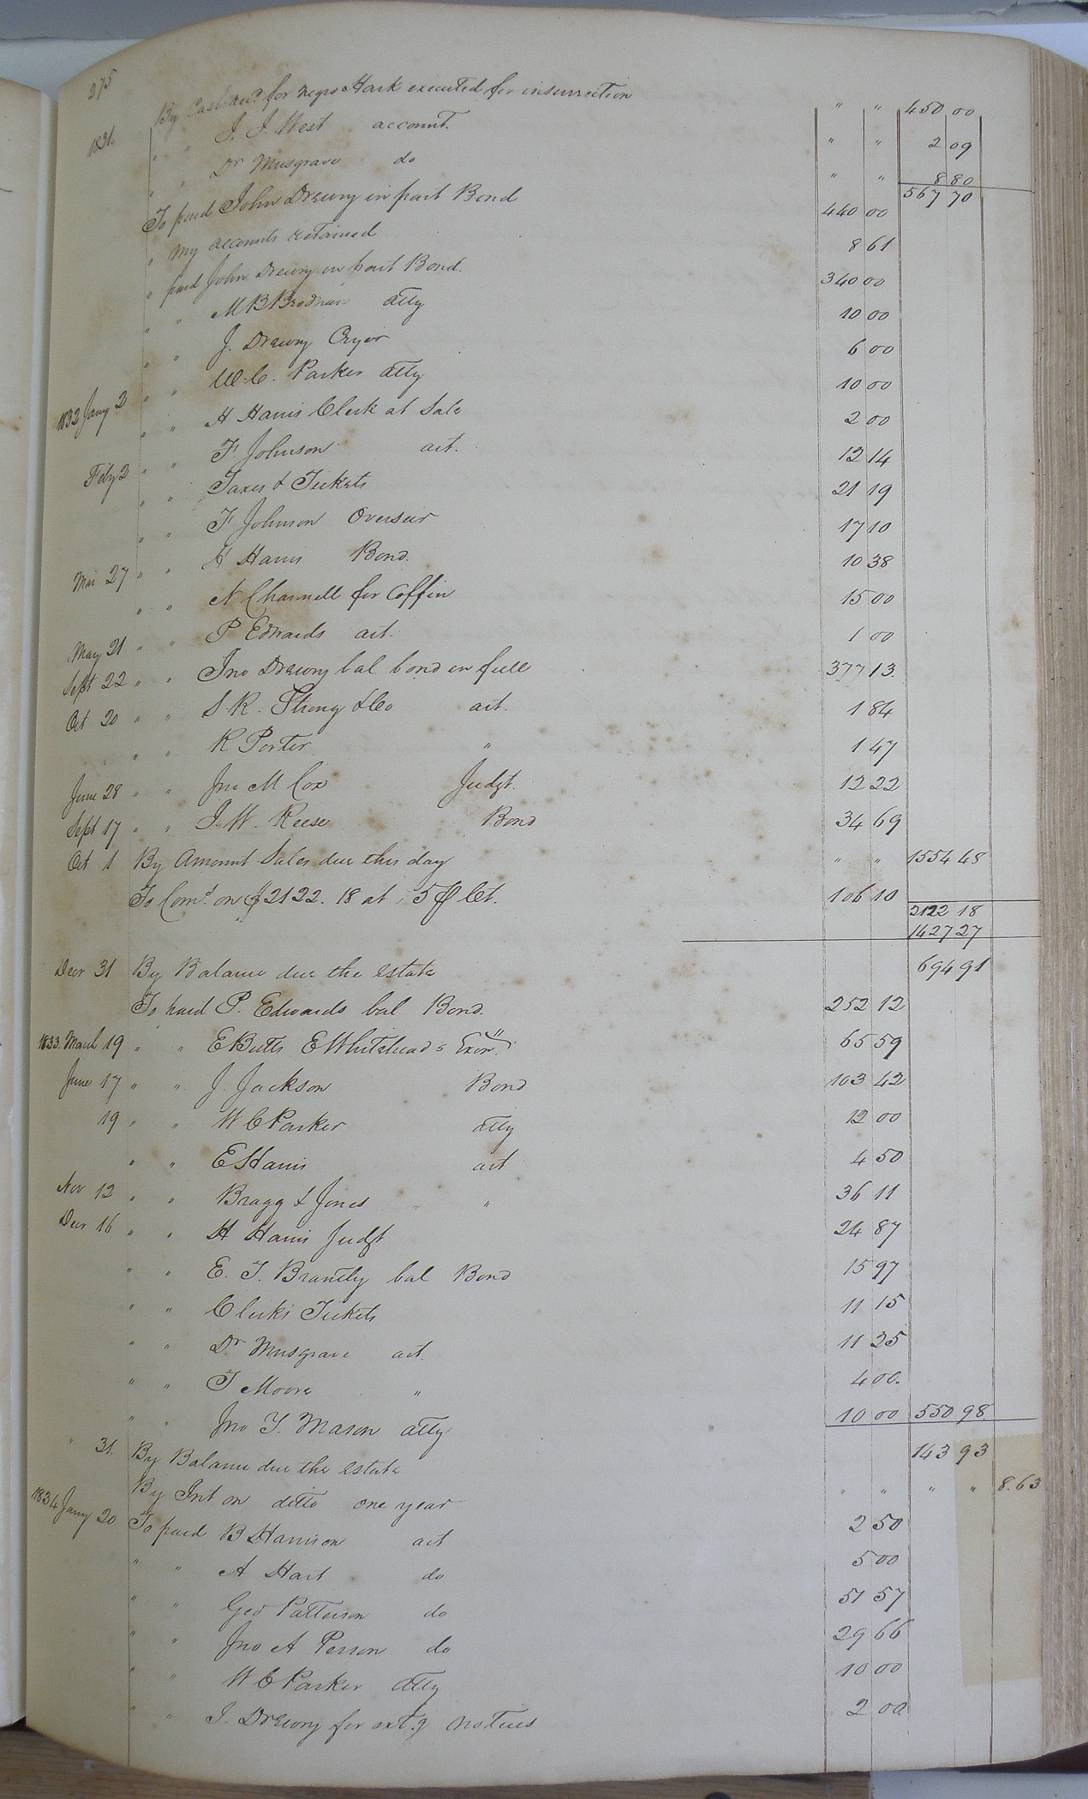 275
By Cash recd for negro Hark executed for insurrection " " 450 00
1831. " " J. J. West account. " " 2 09
" " Dr Musgrave do " " 8 80
567 70
To paid John Drewry in part Bond 440 00
" my accounts retained 8 61
" paid John Drewry in part Bond. 340 00
" " M B Brodnax atty 10 00
" " J. Drewry Cryer 6 00
" " W. C. Parker atty 10 00
1832 Jany 2 " " H Harris Clerk at Sale 2 00
" " F. Johnson act. 12 14
Feby 2 " " Taxes & Tickets 21 19
" " F Johnson Overseer 17 10
" " H Harris Bond. 10 38
Mar 27 " " N Charnell for Coffin 15 00
" " P Edwards act. 1 00
May 21 " " Jno Drewry bal bond in full 377 13.
Sept 22 " " S. R. Strong & Co act. 1 84
Oct 20 " " R Porter " 1 47
" " Jno M Cox Judgt. 12 22
June 28 " " J. W. Reese Bond 34 69
Sept 17
Oct 1 By Amount Sales due this day " " 1554 48
To Comd. on $2122.18 at 5 p Ct. 106 10
2122 18
1427 27
Decr 31 By Balance due the estate 694 91
To paid P. Edwards bal Bond. 252 12
1833. March 19 " " E Butts E Whitehead's Exor. " 65 59
June 17 " " J. Jackson Bond 103 42
19 " " W C Parker atty 12 00
" " E Harris act 4 50
Nov 12 " " Bragg & Jones " 36 11
Decr 16 " " H Harris Judgt 24 87
" " E. T. Brantly bal Bond 15 97
" " Clerks Tickets 11 15
" " Dr Musgrave act. 11 25
" " T Moore " 4 00.
" " Jno Y. Mason atty 10 00 550 98
" 31. By Balance due the estate 143 93
By Int on ditto one year " " " " 8.63
1834 Jany 20 To paid B Harrison act 2 50
" " A Hart do 5 00
" " Geo Patterson do 51 57
" " Jno A Person do 29 66
" " W C Parker atty 10 00
" " J. Drewry for ext.g notices 2 00